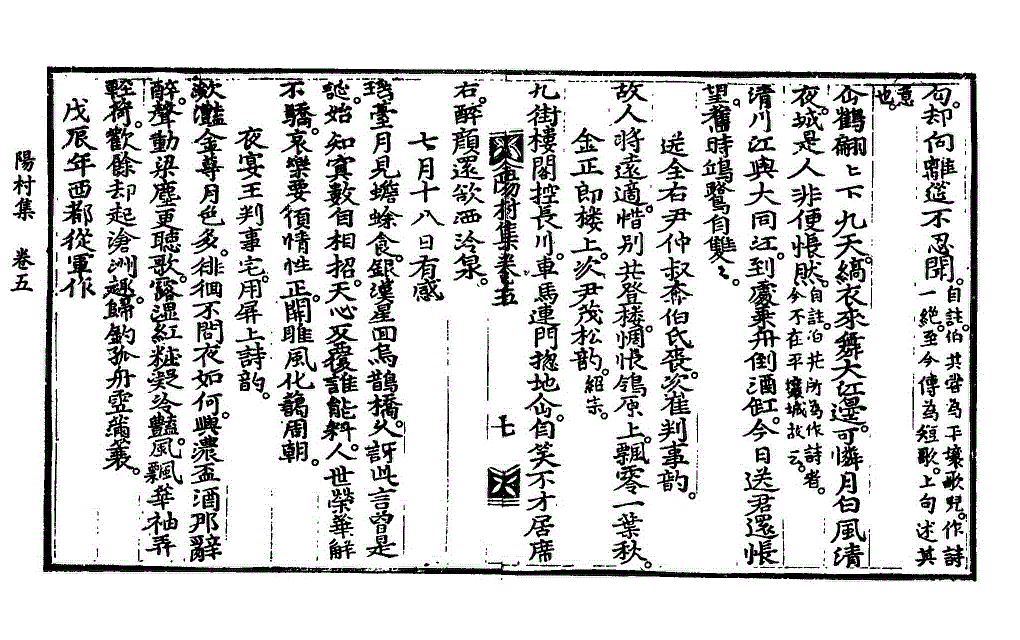 句。却向離筵不忍聞。自註。伯共嘗爲平壤歌兒。作詩一絶。至今傳爲短歌。上句述其
意也。
仙鶴翩々下九天。縞衣來舞大江邊。可憐月白風淸
夜。城是人非便悵然。自註。伯共所爲作詩者。今不在平壤城。故云。
淸川江與大同江。到處乘舟倒酒缸。今日送君還悵
望。舊時鴻鷺自雙々。
送全右尹仲叔奔伯氏喪。次崔判事韵。
故人將遠適。惜別共登樓。惆悵鴒原上。飄零一葉秋。
金正郎樓上。次尹茂松韵。紹宗。
九街樓閣控長川。車馬連門摠地仙。自笑不才居席
陽村集卷五 七
右。醉顔還欲洒冷泉。
七月十八日有感
瑤臺月見蟾蜍食。銀漢星回烏鵲橋。久訝此言曾是
誕。始知寘數自相招。天心反覆誰能料。人世榮華解
不驕。哀樂要須情性正。關雎風化藹周朝。
夜宴王判事宅。用屛上詩韵。
瀲灔金尊月色多。徘徊不問夜如何。興濃盃酒那辭
醉。聲動梁塵更聽歌。露濕紅粧凝冷豔。風飄華袖弄
輕荷。歡餘却起滄洲趣。歸釣孤舟雪滿蓑。
戊辰年西都從軍作
陽村集 卷五